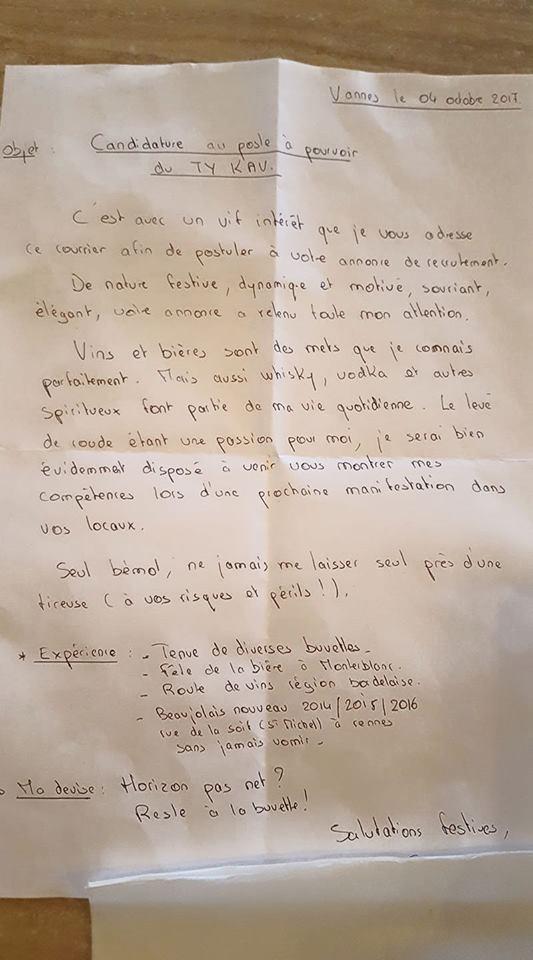 Vannes le 04 octobre 2017.
Objet : Candidature au poste à pourvoir
du TY KAV.
C'est avec un vif intérêt que je vous adresse
ce courrier afin de postuler à votre annonce de recrutement.
De nature festive, dynamique et motivé, souriant,
élégant, votre annonce a retenu toute mon attention.
Vins et bières sont des mets que je connais
parfaitement. Mais aussi whisky, vodka et autres
spiritueux font partie de ma vie quotidienne. Le levé
de coude étant une passion pour moi, je serai bien
évidemment disposé à venir vous montrer mes
compétences lors d'une prochaine manifestation dans
vos locaux.
Seul bémol, ne jamais me laisser seul près d'une
tireuse (à vos risques et périls !).
* Expérience : - Tenue de diverses buvettes.
- Fête de la bière à Monterblanc.
- Route de vins région bordelaise.
- Beaujolais nouveau 2014/2015/2016
rue de la soif (St Michel) à rennes
sans jamais vomir.
Ma devise : Horizon pas net ?
Reste à la buvette !
Salutations festives,